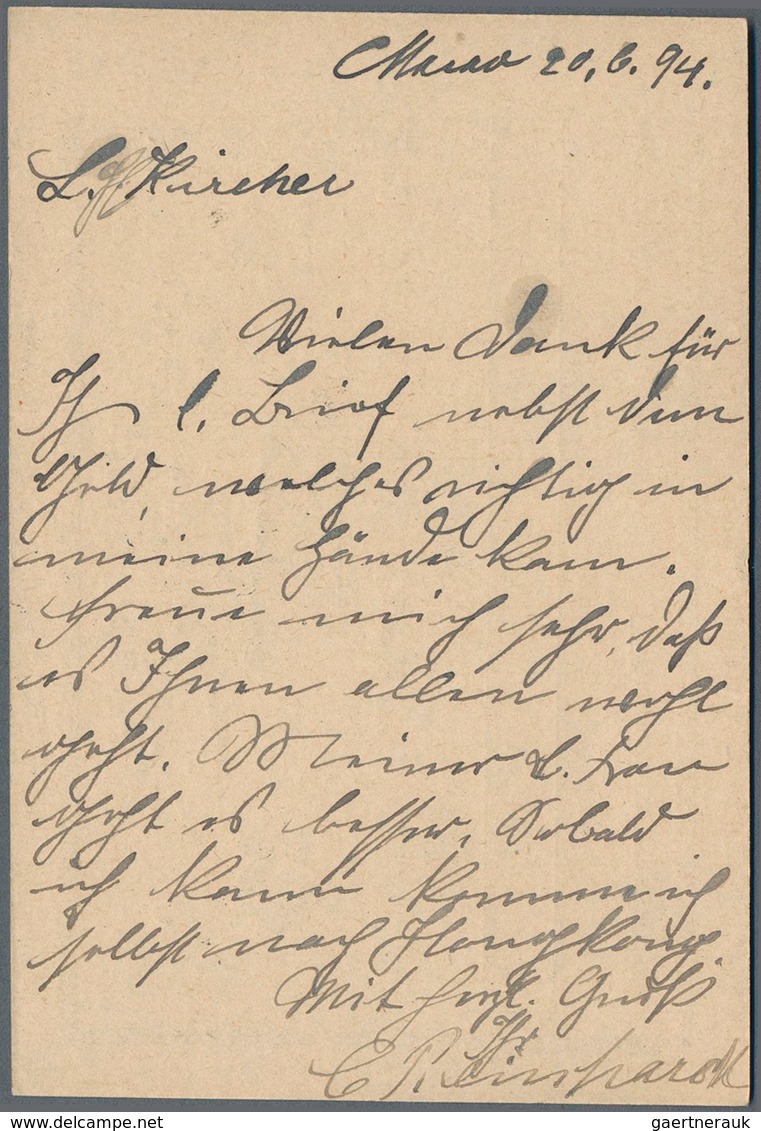 Macao 20.6.94.
L. H. Kircher
Vielen Dank für
Ih l. Brief nebst dem
Geld, welches richtig in
meine Hände kam.
Freue mich sehr, daß
es Ihnen allen wohl
geht. Meiner l. Frau
geht es besser. Sobald
ich kann komme ich
selbst nach Hongkong.
Mit herzl. Gruß
Ihr
C Reinhardt
www.delcampe.net
gaertnerauk